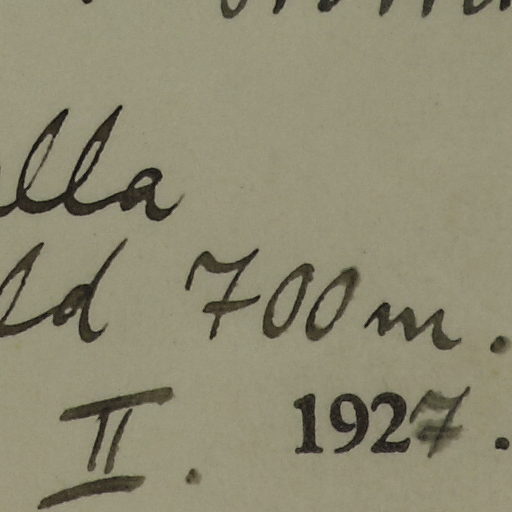 lla
ld 700m.
II. 1927.